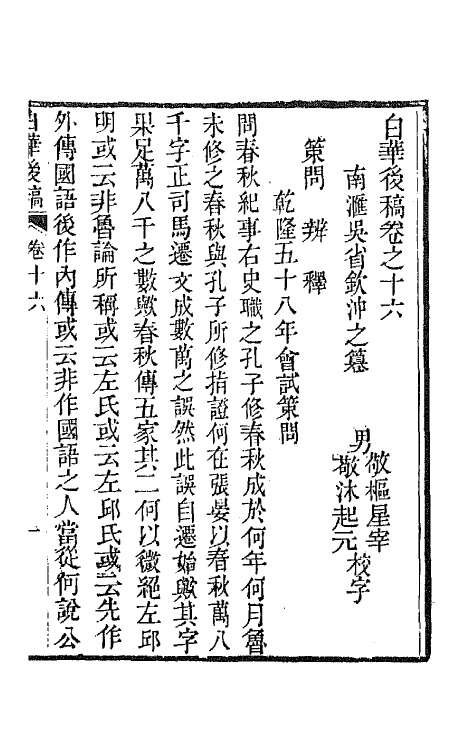 白華後稿卷之十六
南滙吳省欽沖之纂
男敬樞星宰
敬沐起元
校字
策問 辨 釋
乾隆五十八年會試策問
問春秋紀事右史職之孔子修春秋成於何年何月魯
未修之春秋與孔子所修指證何在張晏以春秋萬八
千字正司馬遷文成數萬之誤然此誤自遷始歟其字
果足萬八千之數歟春秋傳五家其二何以微絕左邱
明或云非魯論所稱或云左氏或云左邱氏或云先作
外傳國語後作內傳或云非作國語之人當從何說公
白華後稿
卷十六
一